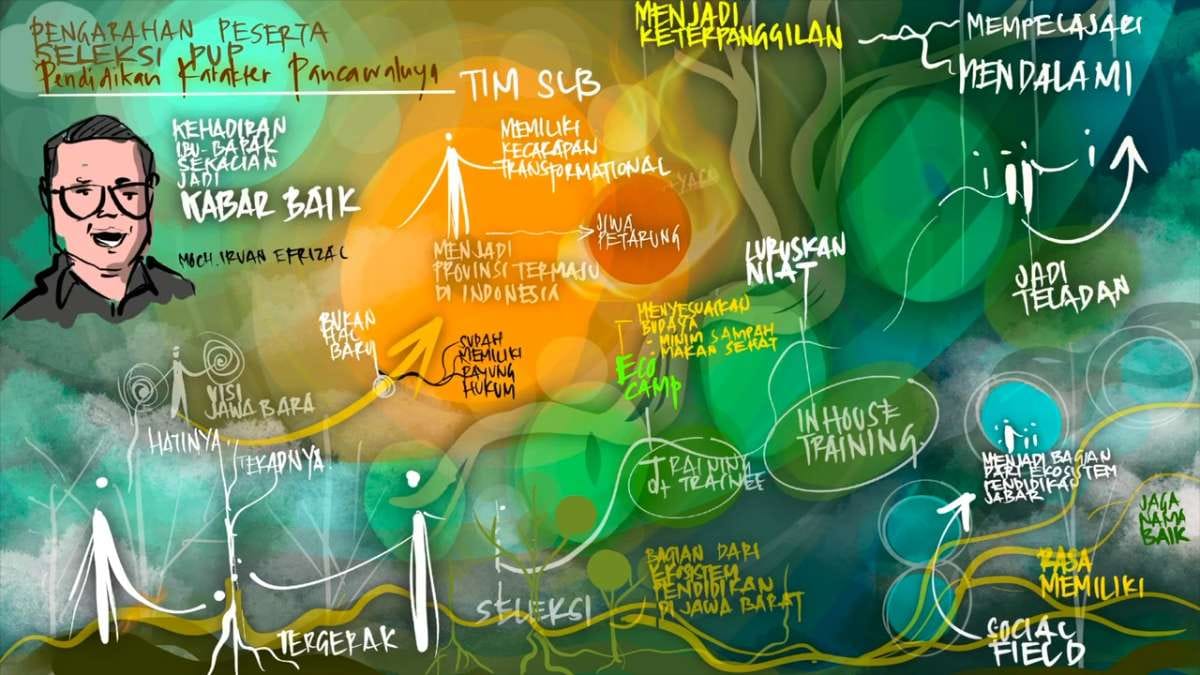 PENGARAHAN PESERTA
SELEKSI PUP
Pendidikan Karakter Pancawaluya
TIM SLB
KEHADIRAN
IBU-BAPAK
SEKALIAN
JADI
KABAR BAIK
MOCH. IRVAN EFRIZAL
MENJADI
KETERPANGGILAN
MEMPELAJARI
MENDALAMI
MEMILIKI
KECAKAPAN
TRANSFORMATIONAL
JIWA
PETARUNG
MENJADI
PROVINSI TERMAJU
DI INDONESIA
LURUSKAN
NIAT
JADI
TELADAN
BUKAN
HAL
BARU
SUDAH
MEMILIKI
PAYUNG
HUKUM
MENYESUAIKAN
BUDAYA
- MINIM SAMPAH
- MAKAN SEHAT
ECO
CAMP
VISI
JAWA BARA
HATINYA
TEKADNYA
IN HOUSE
TRAINING
TRAINING
of TRAINEE
MENJADI BAGIAN
DARI EKOSISTEM
PENDIDIKAN
JABAR
JAGA
NAMA
BAIK
BAGIAN DARI
EKOSISTEM
PENDIDIKAN
DI JAWA BARAT
RASA
MEMILIKI
SELEKSI
TERGERAK
SOCIAL
FIELD